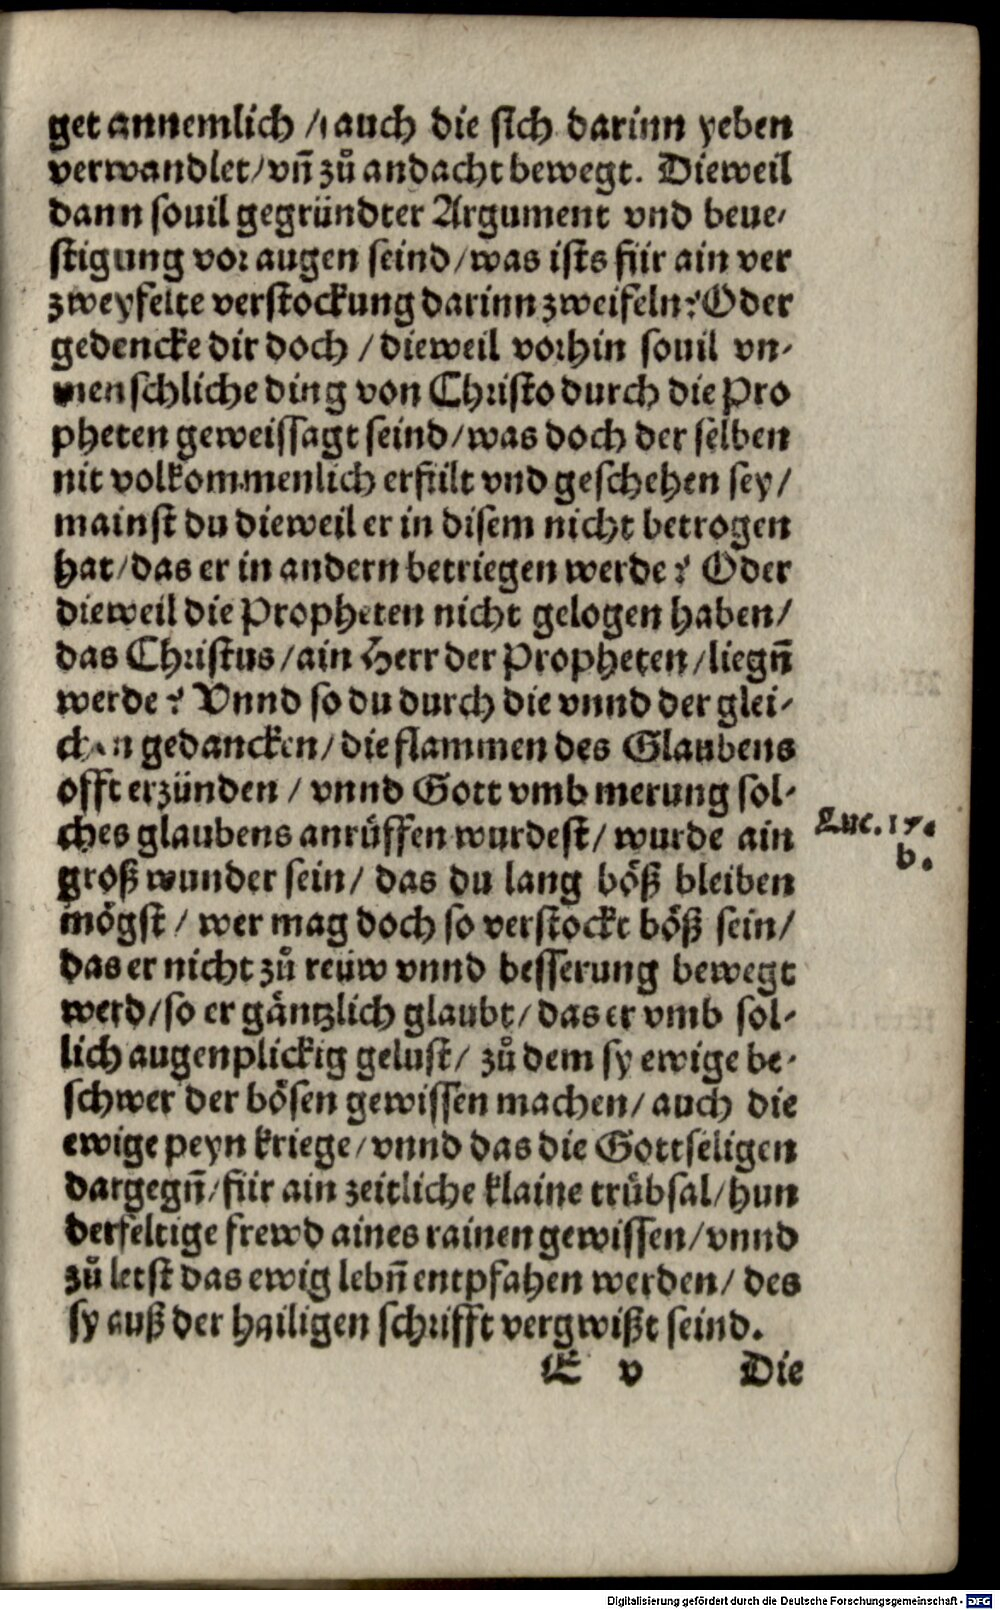 get annemlich / auch die sich darinn yeben
verwandlet / vñ zů andacht bewegt. Dieweil
dann souil gegründter Argument vnd beue-
stigung vor augen seind / was ists für ain ver
zweyfelte verstockung darinn zweifeln? Oder
gedencke dir doch / dieweil vorhin souil vn-
menschliche ding von Christo durch die Pro
pheten geweissagt seind / was doch der selben
nit volkommenlich erfült vnd geschehen sey /
mainst du dieweil er in disem nicht betrogen
hat / das er in andern betriegen werde? Oder
dieweil die Propheten nicht gelogen haben /
das Christus / ain Herr der Propheten / liegñ
werde? Vnnd so du durch die vnnd der glei-
chen gedancken / die flammen des Glaubens
offt erzünden / vnnd Gott vmb merung sol-
ches glaubens anrůffen wurdest / wurde ain
groß wunder sein / das du lang böß bleiben
mögst / wer mag doch so verstockt böß sein /
das er nicht zů reüw vnnd besserung bewegt
werd / so er gäntzlich glaubt / das er vmb sol-
lich augenplickig gelust / zů dem sy ewige be-
schwer der bösen gewissen machen / auch die
ewige peyn kriege / vnnd das die Gottseligen
dargegñ / für ain zeitliche klaine trübsal / hun
derfeltige frewd aines rainen gewissen / vnnd
zů letst das ewig lebñ entpfahen werden / des
sy auß der hailigen schrifft vergwißt seind.
E v Die
Luc. 17.
b.
Digitalisierung gefördert durch die Deutsche Forschungsgemeinschaft - DFG